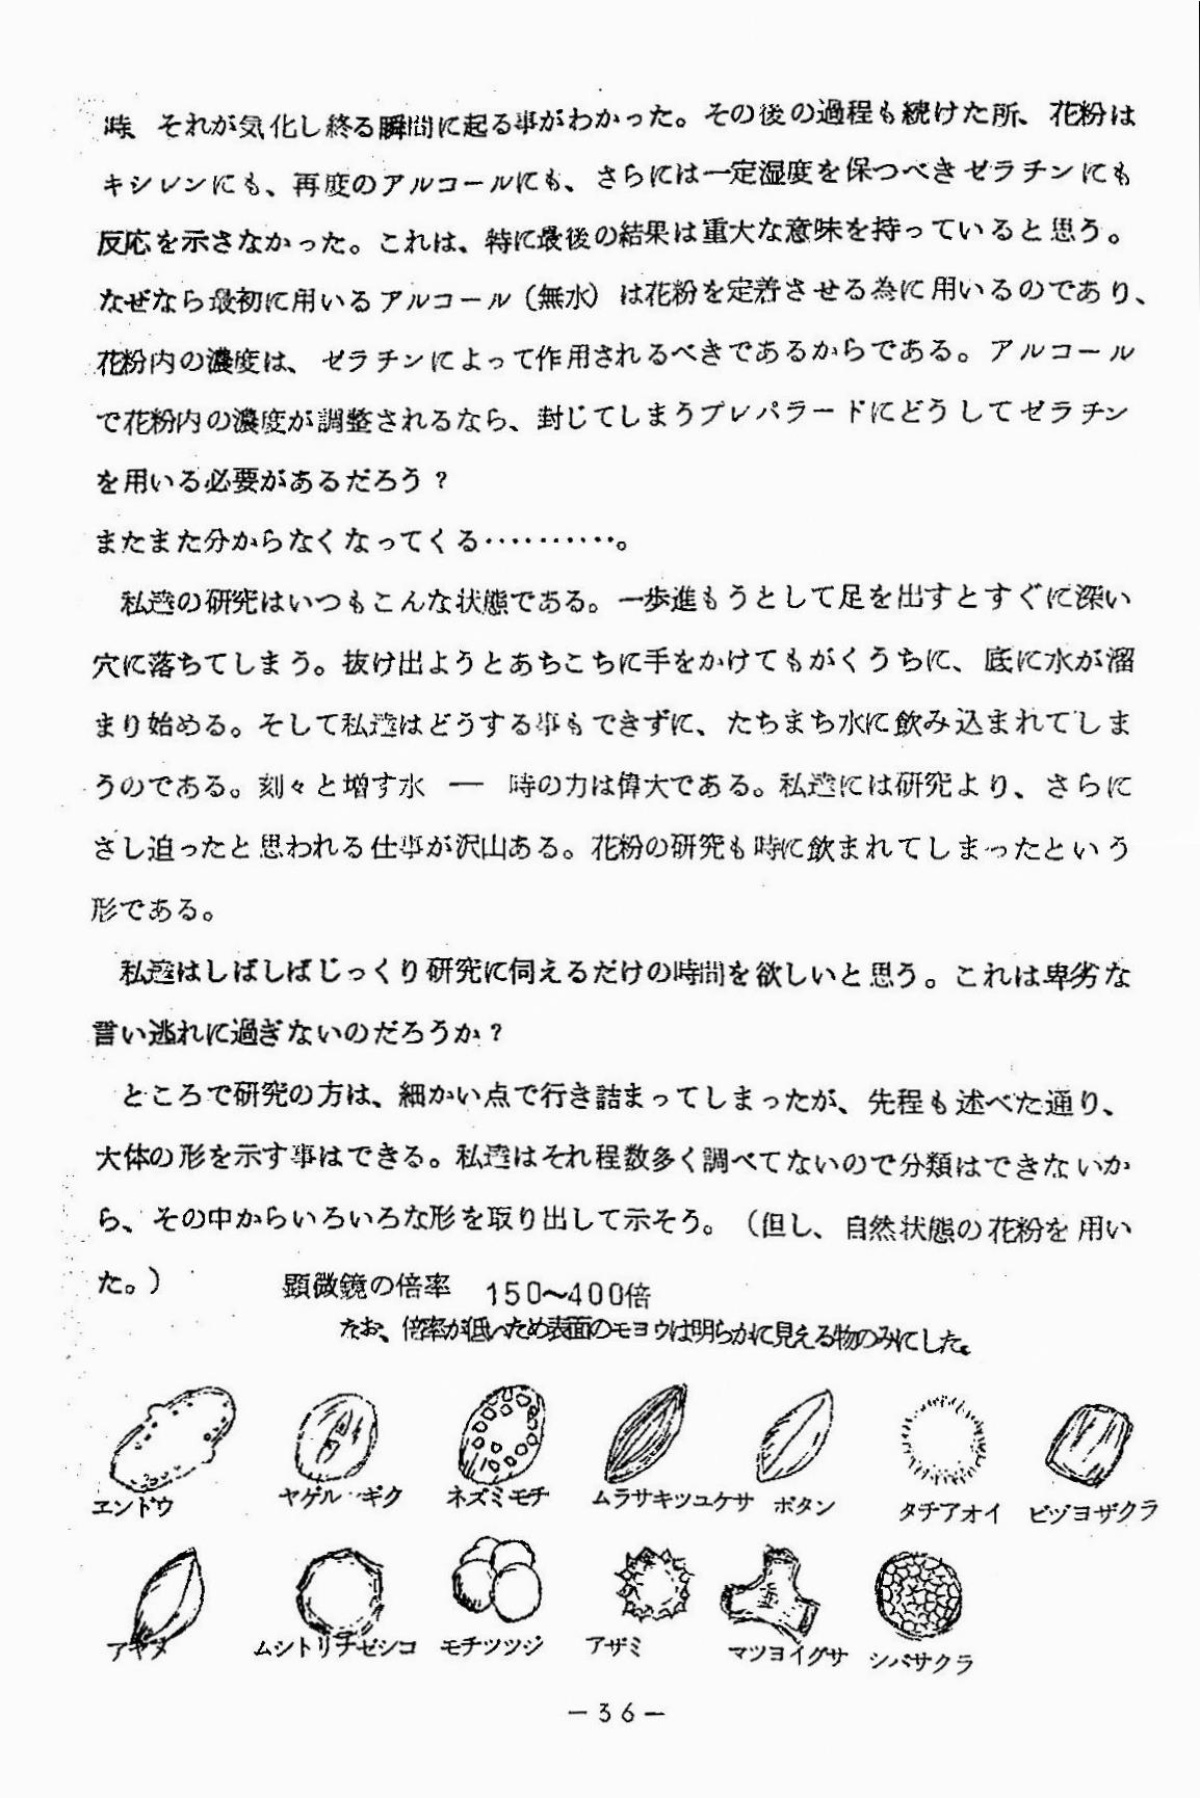 時、それが気化し終る瞬間に起る事がわかった。その後の過程も続けた所、花粉は
キシレンにも、再度のアルコールにも、さらには一定湿度を保つべきゼラチンにも
反応を示さなかった。これは、特に最後の結果は重大な意味を持っていると思う。
なぜなら最初に用いるアルコール（無水）は花粉を定着させる為に用いるのであり、
花粉内の濃度は、ゼラチンによって作用されるべきであるからである。アルコール
で花粉内の濃度が調整されるなら、封じてしまうプレパラードにどうしてゼラチン
を用いる必要があるだろう？
またまた分からなくなってくる‥‥‥‥‥。
私達の研究はいつもこんな状態である。一歩進もうとして足を出すとすぐに深い
穴に落ちてしまう。抜け出ようとあちこちに手をかけてもがくうちに、底に水が溜
まり始める。そして私達はどうする事もできずに、たちまち水に飲み込まれてしま
うのである。刻々と増す水 ― 時の力は偉大である。私達には研究より、さらに
さし迫ったと思われる仕事が沢山ある。花粉の研究も時に飲まれてしまったという
形である。
私達はしばしばじっくり研究に伺えるだけの時間を欲しいと思う。これは卑劣な
言い逃れに過ぎないのだろうか？
ところで研究の方は、細かい点で行き詰まってしまったが、先程も述べた通り、
大体の形を示す事はできる。私達はそれ程数多く調べてないので分類はできないか
ら、その中からいろいろな形を取り出して示そう。（但し、自然状態の花粉を用い
た。） 顕微鏡の倍率 150～400倍
なお、倍率が低いため表面のモヨウは明らかに見える物のみにした。
エンドウ ヤグルマギク ネズミモチ ムラサキツユケサ ボタン タチアオイ ビジョザクラ
アヤメ ムシトリナゼシコ モチツツジ アザミ マツヨイグサ シバサクラ
－36－